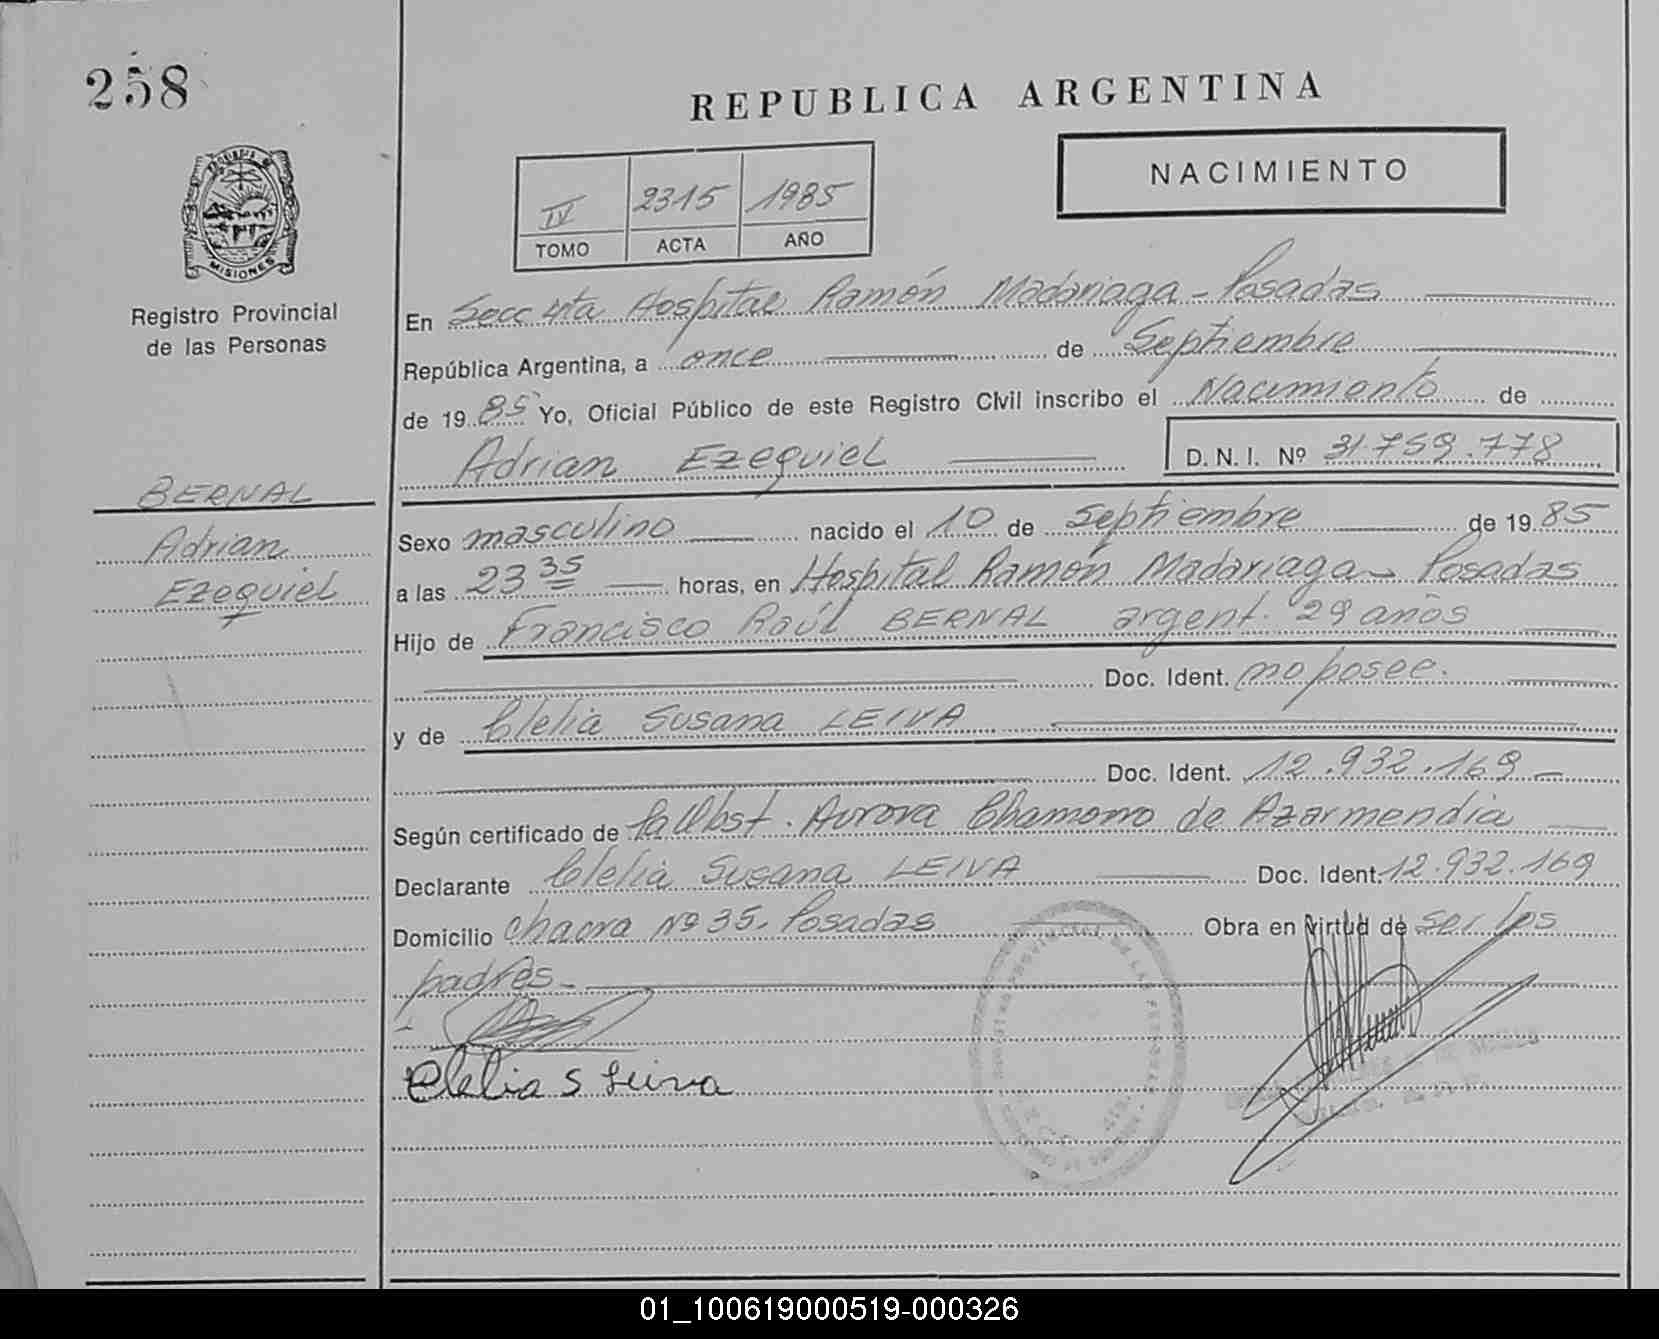 258
REPUBLICA ARGENTINA
NACIMIENTO
IV 2315 1985
TOMO ACTA AÑO
PROVINCIA DE
MISIONES
Registro Provincial
de las Personas
En Secc 4ta Hospital Ramón Madariaga - Posadas
República Argentina, a once de Septiembre
de 1985 Yo, Oficial Público de este Registro Civil inscribo el Nacimiento de
Adrian Ezequiel D. N. I. Nº 31.759.778
BERNAL
Adrian
Ezequiel
Sexo masculino nacido el 10 de Septiembre de 1985
a las 23 35 horas, en Hospital Ramón Madariaga - Posadas
Hijo de Francisco Raúl BERNAL argent. 29 años
Doc. Ident. no posee.
y de Clelia Susana LEIVA
Doc. Ident. 12.932.169
Según certificado de la Obst. Aurora Chamorro de Azarmendia
Declarante Clelia Susana LEIVA Doc. Ident. 12.932.169
Domicilio Chacra Nº 35. Posadas Obra en virtud de ser los
padres -
Clelia S Leiva
01_100619000519-000326